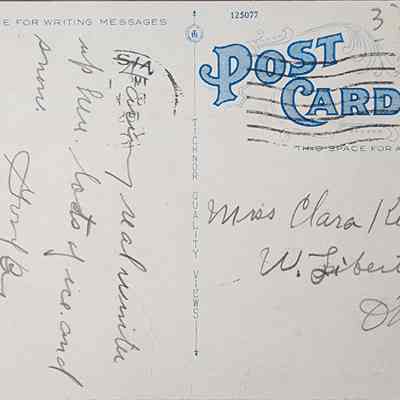 E FOR WRITING MESSAGES
125077
3
POST
CARD
THIS SPACE FOR A
TICHNOR QUALITY VIEWS
Having real winter
up here. Lots of ice and
snow.
Miss Clara K
W. Libert